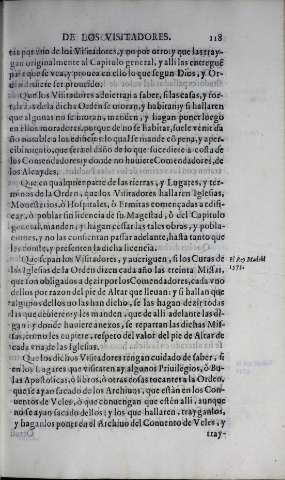 DE LOS VISITADORES. 118
tas por vno de los Visitadores, y no por otro: y que las tray-
gan originalmente al Capitulo general, y alli las entreguẽ
para que se vea, y prouea en ello lo que segun Dios, y Or-
den deuiere ser proueido:
Que los Visitadores aduiertan a saber, si las casas, y for-
talezas de la dicha Orden se moran, y habitan: y si hallaren
que algunas no se moran, manden, y hagan poner luego
en ellos moradores, porque de no se habitar, suele venir da
ño notable a los edificios: lo qual se mande cō pena, y aper-
cibimiento, que sera el daño de lo que sucediere a costa de
los Comendadores: y donde no huuiere Comendadores, de
los Alcaydes.
Que en qualquier parte de las tierras, y Lugares, y ter-
minos de la Orden, que los Visitadores hallaren Iglesias,
Monesterios, ò Hospitales, ò Ermitas començadas a edifi-
car, ò poblar sin licencia de su Magestad, ò del Capitulo
general, manden, y hagan cessar las tales obras, y pobla-
ciones, y no las consientan passar adelante, hasta tanto que
les conste, y presenten la dicha licencia.
Que sepan los Visitadores, y auerigue n, si los Curas de
las Iglesias de la Orden dizen cada año las treinta Missas,
que son obligados a dezir por los Comendadores, cada vno
dellos por razon del pie de Altar que lleuan: y si hallan que
algunos dellos no las han dicho, se las hagan dezir todas
las que deuieren: y les manden, que de alli adelante las di-
gan: y donde huuiere anexos, se repartan las dichas Mis-
sas, como les cupiere, respeto del valor del pie de Altar de
cada vna de las Iglesias.
El Rey Madrid
1573.
Que los dichos Visitadores tengan cuidado de saber, si
en los Lugares que visitaren ay algunos Priuilegios, ò Bu-
las Apostolicas, ò libros, ò otras cosas tocantes a la Orden,
que se ayan sacado de los Archiuos, que estàn en los Con-
uentos de Veles, ò que conuengan que estèn alli, aunque
no se ayan sacado dellos: y los que hallaren, trayganlos,
y haganlos poner en el Archiuo del Conuento de Veles, y
tray-